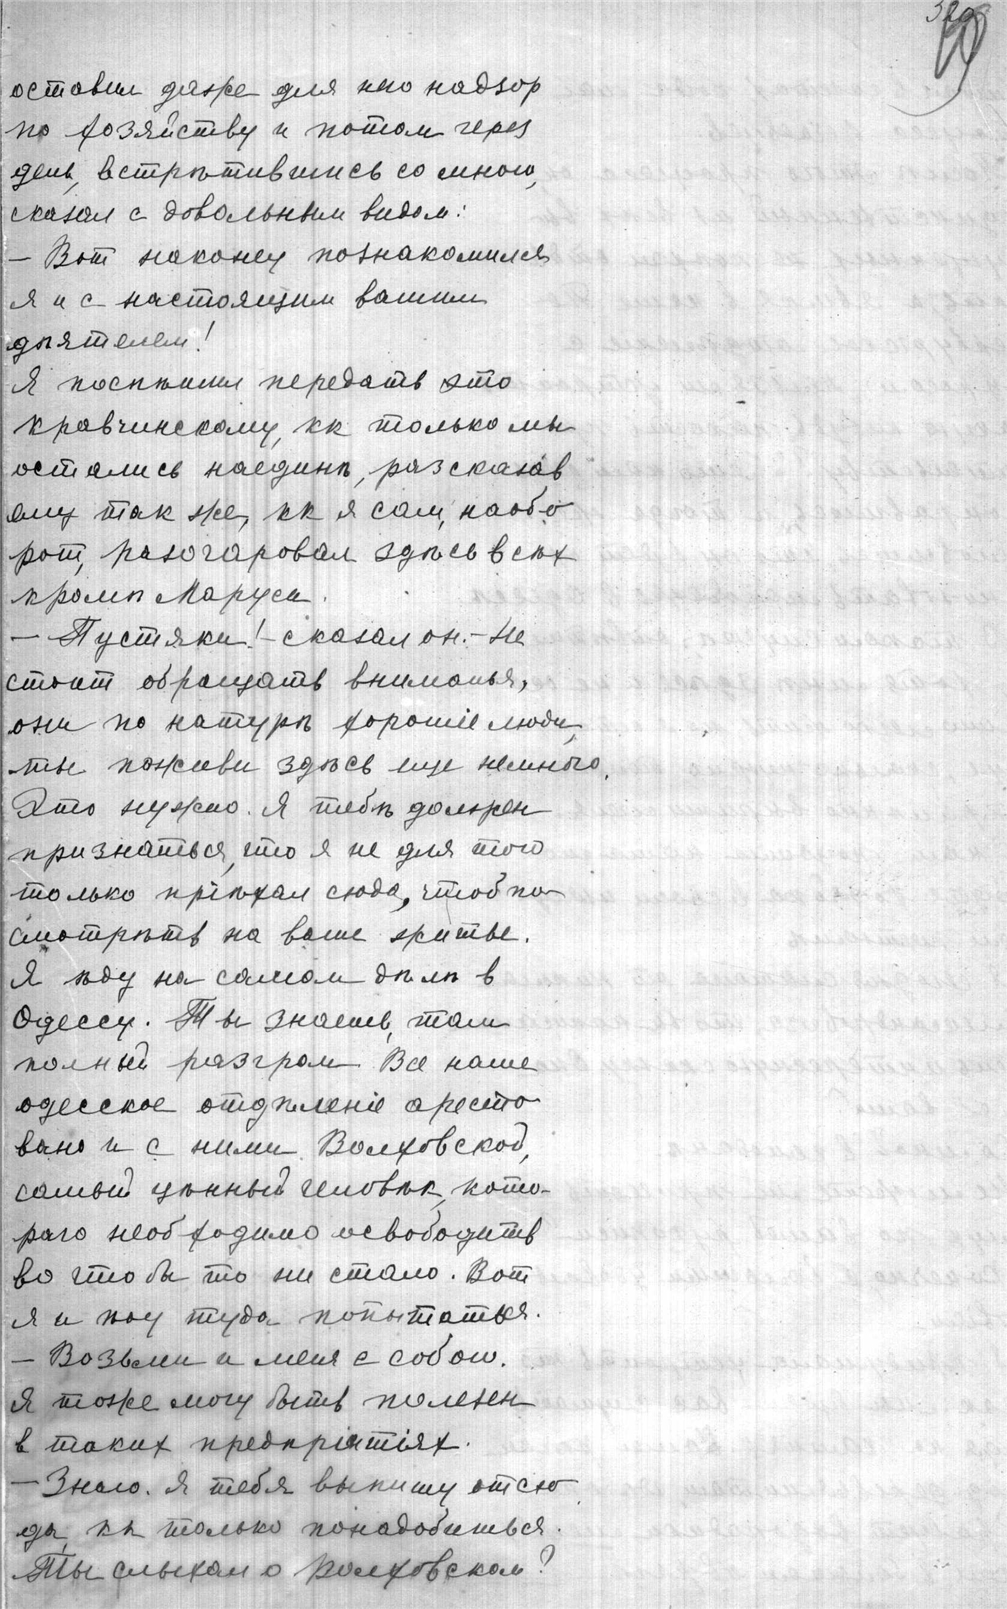 320
оставил даже для него надзор
по хозяйству и потом через
день, встрѣтившись со мною,
сказал с довольным видом:
– Вот наконец познакомился
я и с настоящим вашим
дѣятелем!
Я поспѣшил передать это
Кравчинскому, кк только мы
остались наединѣ, разсказав
ему так же, кк я сам, наобо
рот, разочаровал здѣсь всѣх
кромѣ Маруси.
– Пустяки! – сказал он. – Не
стоит обращать вниманья,
они по натурѣ хорошіе люди,
ты поживи здѣсь еще немного.
Это нужно. Я тебѣ должен
признаться, что я не для того
только пріѣхал сюда, чтоб по
смотрѣть на ваше житье.
Я ѣду на самом дѣлѣ в
Одессу. Ты знаешь, там
полный разгром. Все наше
одесское отдѣленіе аресто
вано и с ними Волховской,
самый цѣнный человѣк, кото-
раго необходимо освободить
во что бы то ни стало. Вот
я и ѣду туда попытаться.
– Возьми и меня с собою.
Я тоже могу быть полезен
в таких предпріятіях.
– Знаю. Я тебя выпишу отсю
да, кк только понадобишься.
Ты слыхал о Волховском?